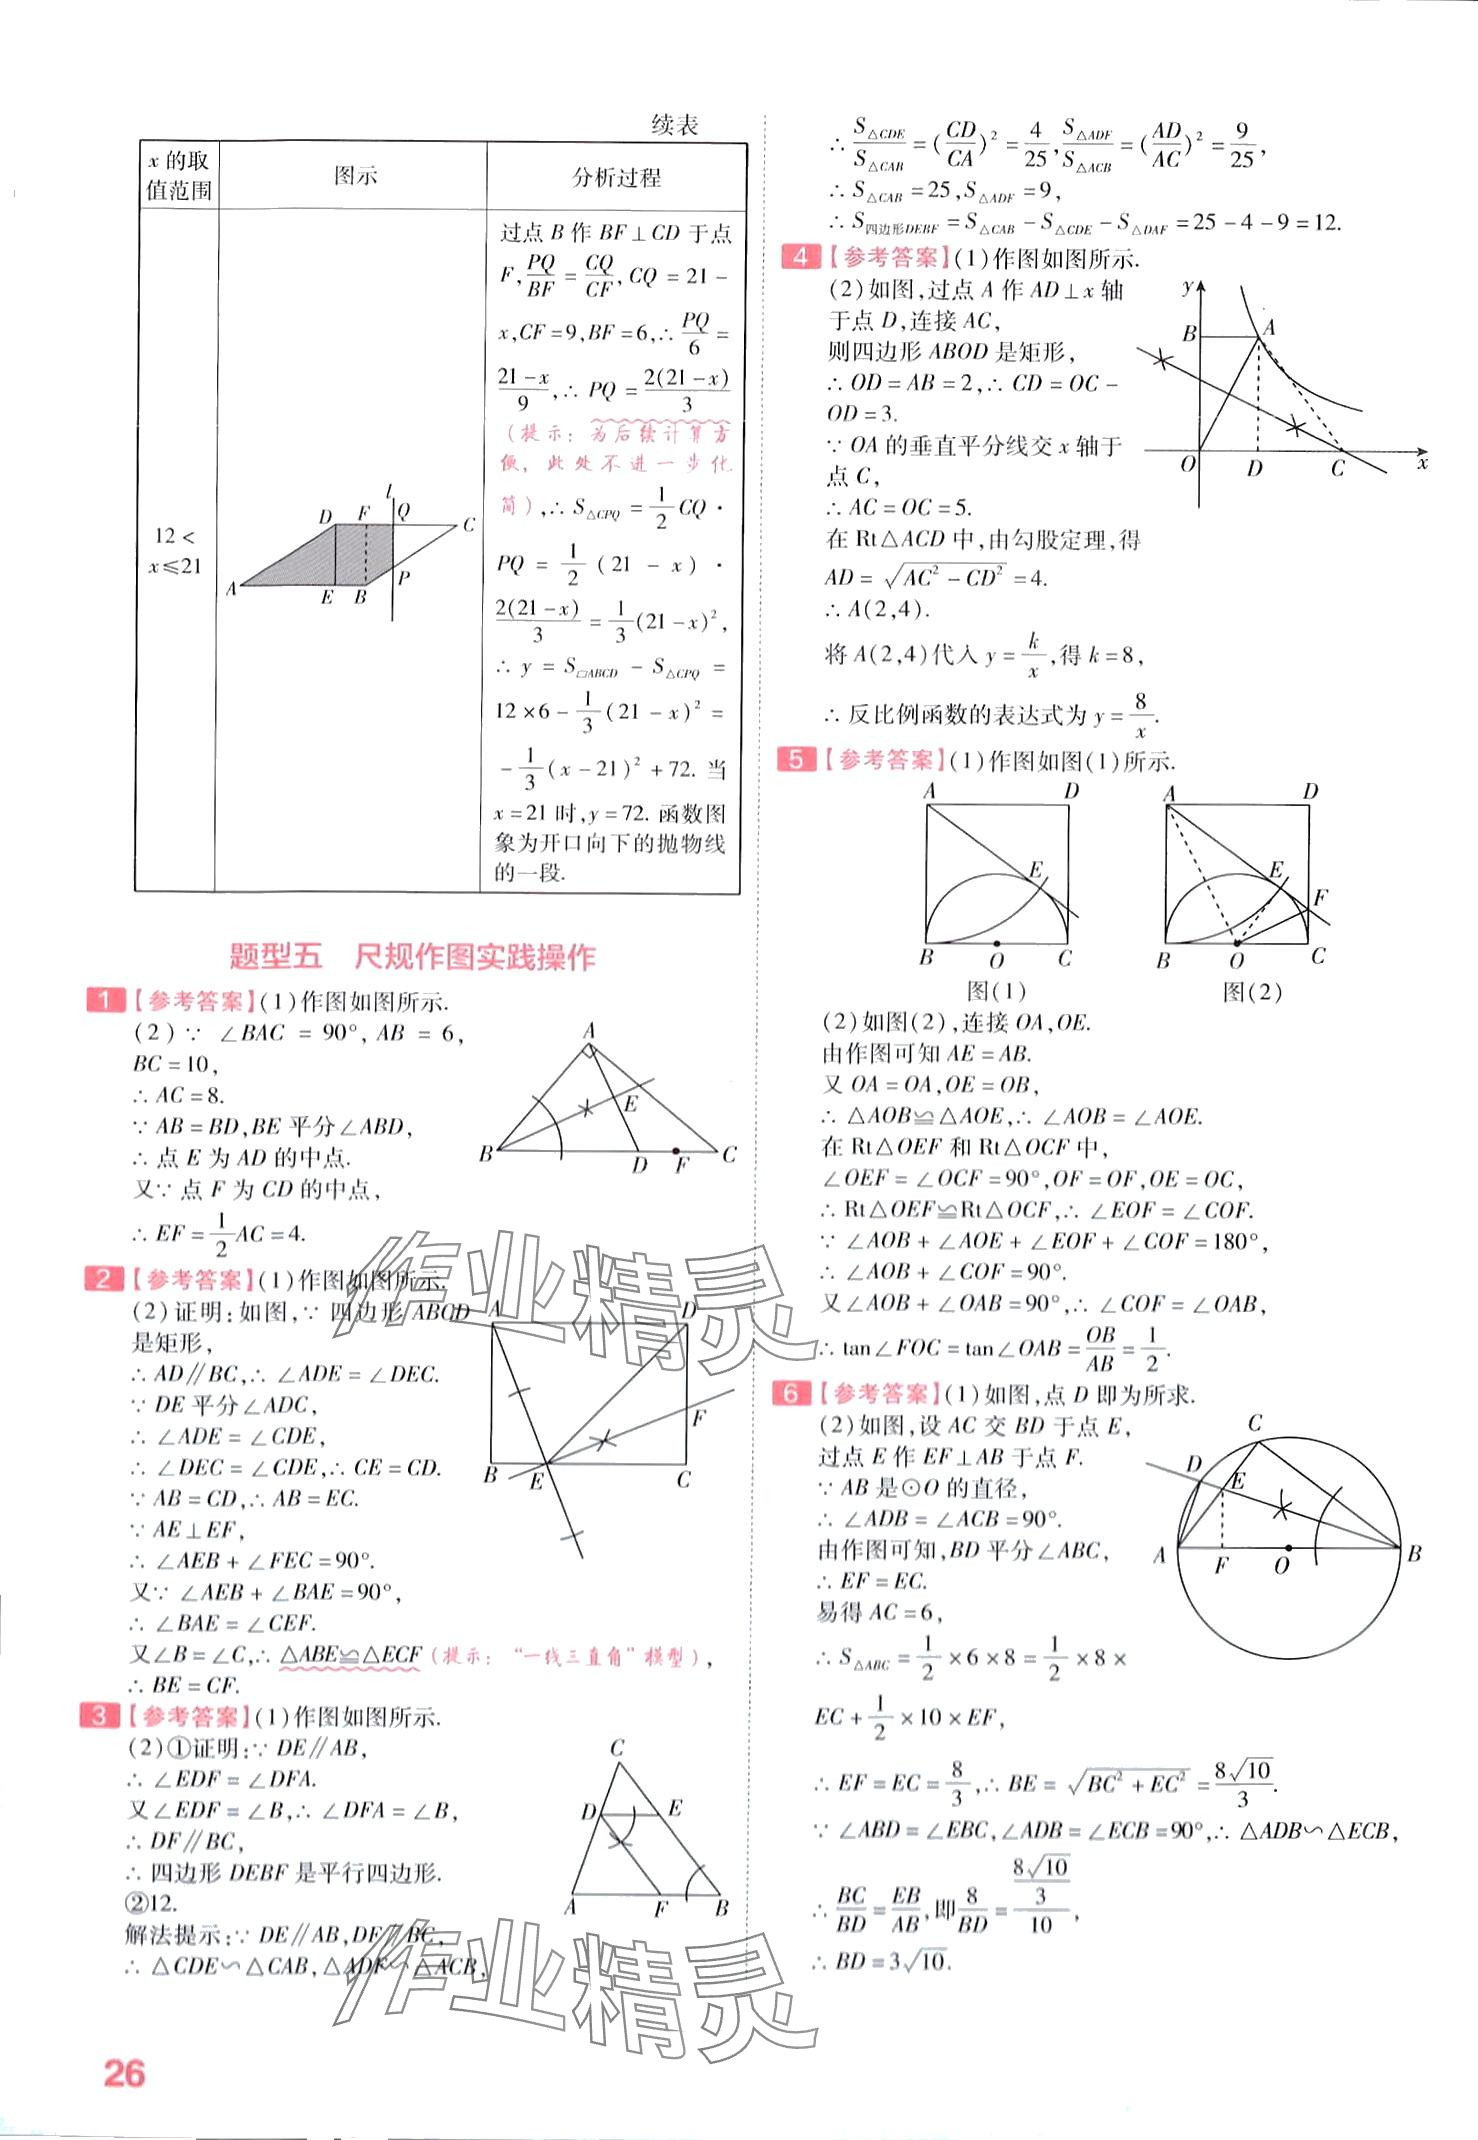 续表
x 的取值范围
图示
分析过程
12 <
x≤21
l
D F Q C
A E B P
过点 B 作 BF⊥CD 于点
F, PQ/BF = CQ/CF, CQ = 21 -
x, CF = 9, BF = 6, ∴ PQ/6 =
(21-x)/9, ∴ PQ = 2(21-x)/3
(提示: 为后续计算方
便, 此处不进一步化
简), ∴ S△CPQ = 1/2 CQ ·
PQ = 1/2 (21 - x) ·
2(21-x)/3 = 1/3 (21-x)²,
∴ y = S□ABCD - S△CPQ =
12×6 - 1/3 (21-x)² =
- 1/3 (x-21)² + 72. 当
x = 21 时, y = 72. 函数图
象为开口向下的抛物线
的一段.
题型五 尺规作图实践操作
1 【参考答案】(1)作图如图所示.
(2) ∵ ∠BAC = 90°, AB = 6,
BC = 10,
∴ AC = 8.
∵ AB = BD, BE 平分∠ABD,
∴ 点 E 为 AD 的中点.
又∵ 点 F 为 CD 的中点,
∴ EF = 1/2 AC = 4.
A
E
B D F C
2 【参考答案】(1)作图如图所示.
(2)证明:如图, ∵ 四边形 ABCD
是矩形,
∴ AD∥BC, ∴ ∠ADE = ∠DEC.
∵ DE 平分∠ADC,
∴ ∠ADE = ∠CDE,
∴ ∠DEC = ∠CDE, ∴ CE = CD.
∵ AB = CD, ∴ AB = EC.
∵ AE⊥EF,
∴ ∠AEB + ∠FEC = 90°.
又∵ ∠AEB + ∠BAE = 90°,
∴ ∠BAE = ∠CEF.
又∠B = ∠C, ∴ △ABE≌△ECF (提示: “一线三直角”模型),
∴ BE = CF.
A D
F
B E C
3 【参考答案】(1)作图如图所示.
(2)①证明:∵ DE∥AB,
∴ ∠EDF = ∠DFA.
又∠EDF = ∠B, ∴ ∠DFA = ∠B,
∴ DF∥BC,
∴ 四边形 DEBF 是平行四边形.
②12.
解法提示:∵ DE∥AB, DF∥BC,
∴ △CDE∽△CAB, △ADF∽△ACB,
C
D E
A F B
∴ S△CDE/S△CAB = (CD/CA)² = 4/25, S△ADF/S△ACB = (AD/AC)² = 9/25,
∴ S△CAB = 25, S△ADF = 9,
∴ S四边形DEBF = S△CAB - S△CDE - S△DAF = 25 - 4 - 9 = 12.
4 【参考答案】(1)作图如图所示.
(2)如图,过点 A 作 AD⊥x 轴
于点 D,连接 AC,
则四边形 ABOD 是矩形,
∴ OD = AB = 2, ∴ CD = OC -
OD = 3.
∵ OA 的垂直平分线交 x 轴于
点 C,
∴ AC = OC = 5.
在 Rt△ACD 中,由勾股定理,得
AD = √(AC² - CD²) = 4.
∴ A(2,4).
将 A(2,4)代入 y = k/x, 得 k = 8,
∴ 反比例函数的表达式为 y = 8/x.
y
B A
O D C x
5 【参考答案】(1)作图如图(1)所示.
A D
E
B O C
图(1)
A D
E
F
B O C
图(2)
(2)如图(2),连接 OA,OE.
由作图可知 AE = AB.
又 OA = OA, OE = OB,
∴ △AOB≌△AOE, ∴ ∠AOB = ∠AOE.
在 Rt△OEF 和 Rt△OCF 中,
∠OEF = ∠OCF = 90°, OF = OF, OE = OC,
∴ Rt△OEF≌Rt△OCF, ∴ ∠EOF = ∠COF.
∵ ∠AOB + ∠AOE + ∠EOF + ∠COF = 180°,
∴ ∠AOB + ∠COF = 90°.
又∠AOB + ∠OAB = 90°, ∴ ∠COF = ∠OAB,
∴ tan∠FOC = tan∠OAB = OB/AB = 1/2.
6 【参考答案】(1)如图,点 D 即为所求.
(2)如图,设 AC 交 BD 于点 E,
过点 E 作 EF⊥AB 于点 F.
∵ AB 是⊙O 的直径,
∴ ∠ADB = ∠ACB = 90°.
由作图可知, BD 平分∠ABC,
∴ EF = EC.
易得 AC = 6,
∴ S△ABC = 1/2 × 6 × 8 = 1/2 × 8 ×
EC + 1/2 × 10 × EF,
∴ EF = EC = 8/3, ∴ BE = √(BC² + EC²) = 8√10/3.
∵ ∠ABD = ∠EBC, ∠ADB = ∠ECB = 90°, ∴ △ADB∽△ECB,
∴ BC/BD = EB/AB, 即 8/BD = (8√10/3)/10,
∴ BD = 3√10.
C
D
E
A F O B
作业精灵
作业精灵
26